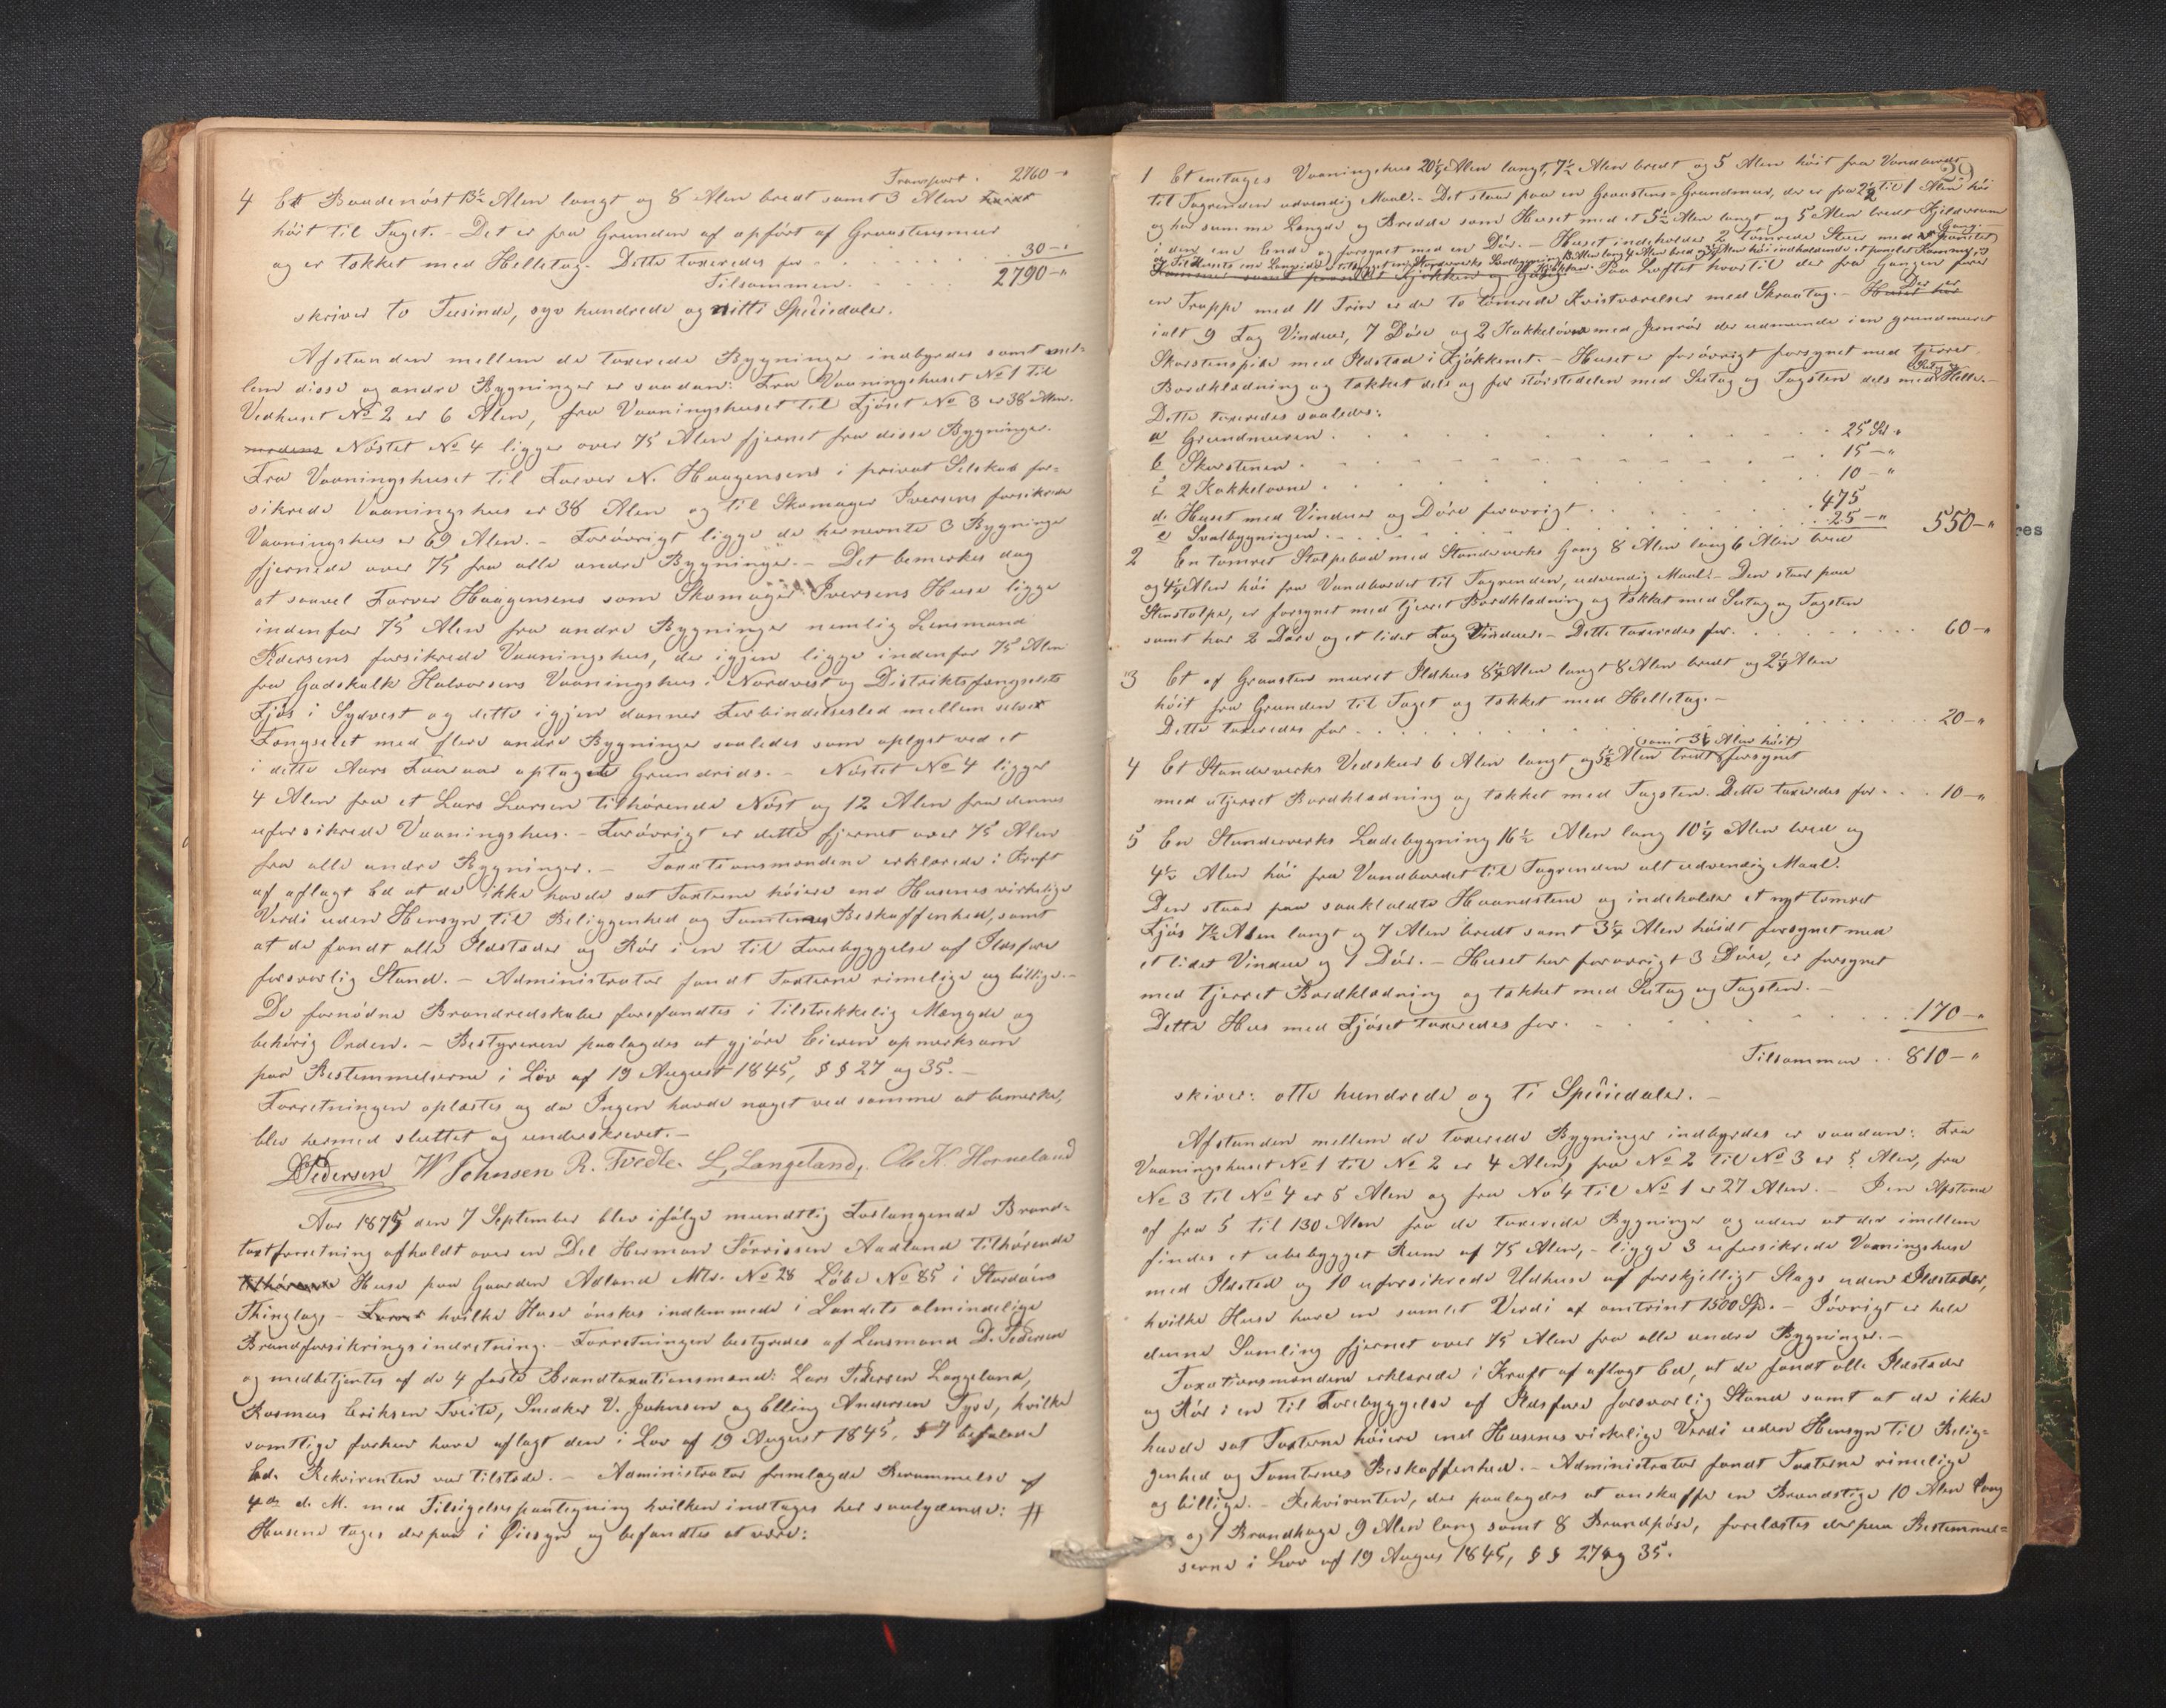 Transport . 2760 - "
4 Et Baadenøst 13½ Alen langt og 8 Alen bredt samt 3 Alen
høit til Taget. - Det er fra Grunden af opført af Graastensmuur
og er tækket med Helletag. Dette taxeredes for . . . 30 - "
Tilsammen . . . . . 2790 - "
skriver to Tusinde, syv hundrede og nitti Speciedaler.
Afstanden mellem de taxerede Bygninger indbyrdes samt mel-
lem disse og andre Bygninger er saadan: Fra Vaaningshuset No 1 til
Vedhuset No 2 er 6 Alen, fra Vaaningshuset til Fjøset No 3 er 38 Alen.
Nøstet No 4 ligger over 75 Alen fjernet fra disse Bygninger.
Fra Vaaningshuset til Farver N. Haagensens i privat Selskab for-
sikrede Vaaningshus er 38 Alen og til Skomager Iversens forsikrede
Vaaningshus er 69 Alen. - Forøvrigt ligge de hernevnte 3 Bygninger
fjernede over 75 fra alle andre Bygninger. - Det bemerkes dog
at saavel Farver Haagensens som Skomager Iversens Huse ligge
indenfor 75 Alen fra andre Bygninger nemlig Lensmand
Pedersens forsikrede Vaaningshus, der igjen ligge indenfor 75 Alen
fra Gadskalk Halvorsens Vaaningshus i Nordvest og Distriktsfængselets
Fjøs i Sydvest og dette igjen danner Forbindelsesled mellem selve
Fængselet med flere andre Bygninger saaledes som oplyst ved et
i dette Aars Januar optaget Grundrids. - Nøstet No 4 ligger
4 Alen fra et Lars Larsen tilhørende Nøst og 12 Alen fra dennes
uforsikrede Vaaningshus. - Forøvrigt er dette fjernet over 75 Alen
fra alle andre Bygninger. - Taxationsmændene erklærede i Kraft
af aflagt Ed at de ikke havde sat Taxterne høiere end Husenes virkelige
Verdi uden Hensyn til Beliggenhed og Tomternes Beskaffenhed, samt
at de fandt alle Ildsteder og Rør i en til Forebyggelse af Ildsfare
forsvarlig Stand. - Administrator fandt Taxterne rimelige og billige. -
De fornødne Brandredskaber forefandtes i tilstrekkelig Mængde og
behørig Orden. - Bestyreren paalagdes at gjøre Eieren opmerksom
paa Bestemmelserne i Lov af 19 August 1845, § § 27 og 35. -
Forretningen oplæstes og da Ingen havde noget ved samme at bemerke,
blev hermed sluttet og underskrevet. -
DPedersen W Johnsen R. Tvedte. L. Langeland, Ole K. Horneland
Aar 1875 den 7 September blev ifølge mundtlig Forlangende Brand-
taxtforretning afholdt over en Del Herman Tørrissen Aadland tilhørende
Huse paa Gaarden Adland Mtr. No 28 Løbe No 85 i Stordøens
Thinglag, - hvilke Huse ønskes indlemmede i Landets almindelige
Brandforsikringsindretning. - Forretningen bestyredes af Lensmand D. Pedersen
og medbetjentes af de 4 faste Brandtaxationsmænd: Lars Pedersen Langeland,
Rasmus Eriksen Tveite, Snedker V. Johnsen og Elling Andersen Tyse, hvilke
samtlige forhen have aflagt den i Lov af 19 August 1845, § 7 befalede
Ed. Rekvirenten var tilstede. - Administrator fremlagde Berammelse af
4de d. M. med Tilsigelsespaategning hvilken indtages her saalydende: #
Husene toges derpaa i Øiesyn og befandtes at være:
29
1 Et enetages Vaaningshus 20¼ Alen langt, 7½ Alen bredt og 5 Alen høit fra Vandbordet
til Tagrenden udvendig Maal. - Det staar paa en Graastens-Grundmur, der er fra 2½ til 1 Alen høi
og har samme Længde og Bredde som Huset med et 5½ Alen langt og 5 Alen bredt Kjelderrum
i den ene Ende og forsynet med en Dør. - Huset indeholder 2 tømrede Stuer med
Paa Loftet hvortil der fra Gangen fører
en Trappe med 11 Trin er der to tømrede Kvistværelser med Skraatag. - Der er
ialt 9 Fag Vinduer, 7 Døre og 2 Kakkelovne med Jernrør der udmunde i en grundmuret
Skorstenspibe med Ildsted i Kjøkkenet. - Huset er forøvrigt forsynet med tjærret
Bordklædning og tækket dels og for størstedelen med Sutag og Tagsten dels med Helle. -
Dette taxeredes saaledes:
a Grundmuren . . . 25 Spd "
b Skorstenen . . . 15 - "
c 2 Kakkelovne . . . 10 - "
d. Huset med Vinduer og Døre forøvrigt . . . 475
e Svalbygningen . . . 25 - " 550 - "
2 En tømret Stolpebod med Standerverks Gang 8 Alen lang 6 Alen bred
og 4¼ Alen høi fra Vandbordet til Tagrenden, udvendig Maal. - Den staar paa
Stenstolpe, er forsynet med tjærret Bordklædning og tækket med Sutag og Tagsten
samt har 2 Døre og et lidet Fag Vinduer. - Dette taxeredes for . . . 60 - "
3 Et af Graasten muret Ildhus 8¼ Alen langt 8 Alen bredt og 2¼ Alen
høit fra Grunden til Taget og tækket med Helletag. -
Dette taxeredes for . . . 20 - "
(samt 3¼ Alen høit)
4 Et Standerverks Vedskur 6 Alen langt og 5½ Alen bredt forsynet
med utjærret Bordklædning og tækket med Tagsten. Dette taxeredes for . . . 10 - "
5 En Standerverks Ladebygning 16½ Alen lang 10¼ Alen bred og
4½ Alen høi fra Vandbordet til Tagrenden alt udvendig Maal.
Den staar paa saakaldte Haandstene og indeholder et nyt tømret
Fjøs 7½ Alen langt og 7 Alen bredt samt 3¼ Alen høidt forsynet med
et lidet Vindue og 1 Dør. - Huset har forøvrigt 3 Døre, er forsynet
med tjærret Bordklædning og tækket med Sutag og Tagsten. -
Dette Hus med Fjøset taxeredes for . . . 170 - "
Tilsammen . . 810 - "
skiver: otte hundrede og ti Speciedaler. -
Afstanden mellem de taxerede Bygninger indbyrdes er saadan: Fra
Vaaningshuset No 1 til No 2 er 4 Alen, fra No 2 til No 3 er 5 Alen, fra
No 3 til No 4 er 5 Alen og fra No 4 til No 1 er 27 Alen. - I en Afstand
af fra 5 til 130 Alen fra de taxerede Bygninger og uden at der imellem
findes et ubebygget Rum af 75 Alen, - ligge 3 uforsikrede Vaaningshuse
med Ildsted og 10 uforsikrede Udhuse af forskjelligt Slags uden Ildsteder,
hvilke Huse have en samlet Verdi af omtrint 1500 Spd. - Iøvrigt er hele
denne Samling fjernet over 75 Alen fra alle andre Bygninger. -
Taxationsmændene erklærede i Kraft af aflagt Ed, at de fandt alle Ildsteder
og Rør i en til Forebyggelse af Ildsfare forsvarlig Stand samt at de ikke
havde sat Taxterne høiere end Husenes virkelige Verdi uden Hensyn til Belig-
genhed og Tomternes Beskaffenhed. - Administrator fandt Taxterne rimelige
og billige. - Rekvirenten, der paalagdes at anskaffe en Brandstige 10 Alen lang
og 1 Brandhage 9 Alen lang samt 8 Brandpøse, forelæstes derpaa Bestemmel-
serne i Lov af 19 Augus 1845, § § 27 og 35.